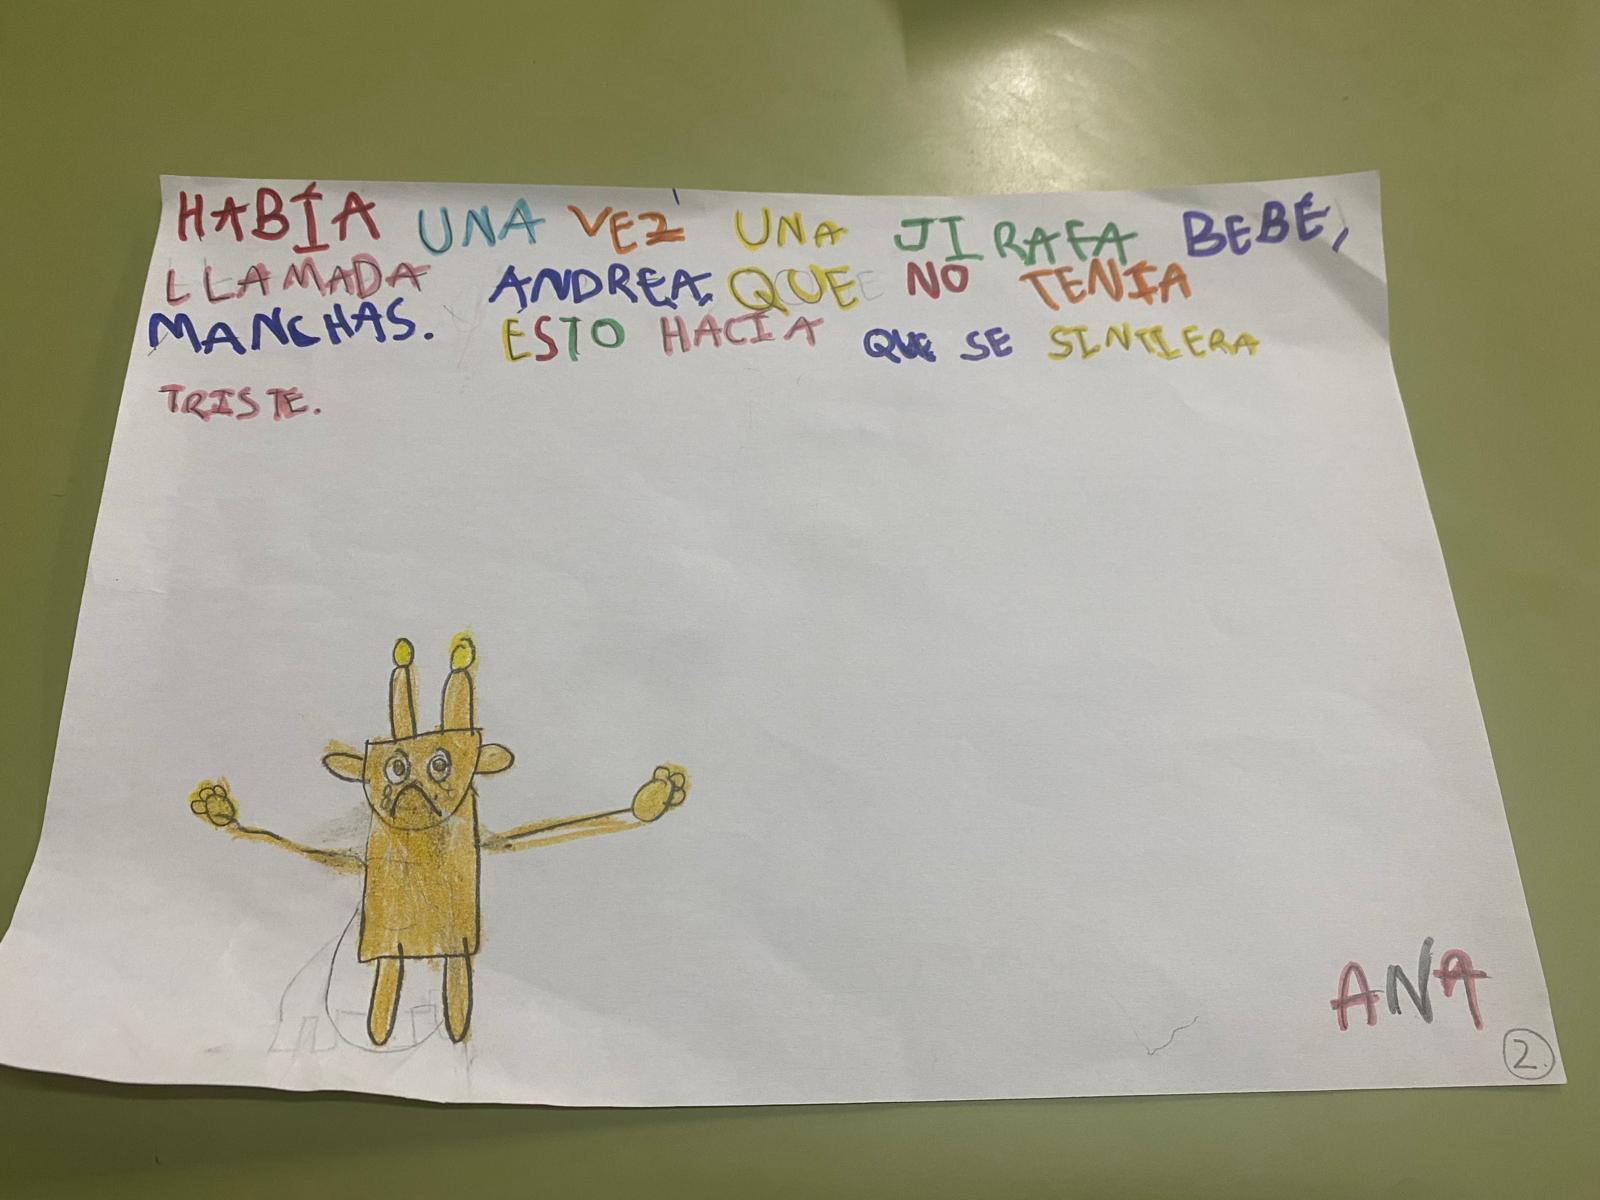 HABÍA UNA VEZ UNA JIRAFA BEBÉ,
LLAMADA ANDREA, QUE NO TENÍA
MANCHAS. ESTO HACÍA QUE SE SINTIERA
TRISTE.
ANA
2.